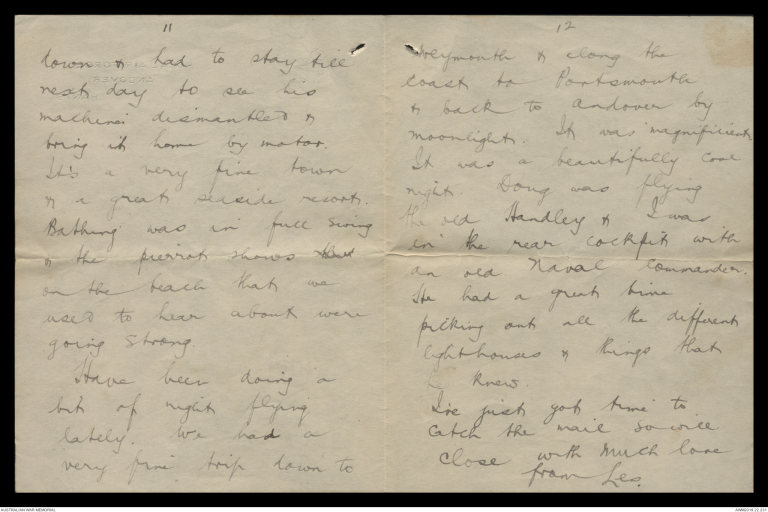 11
town & had to stay till
next day to see his
machine dismantled &
bring it home by motor.
It's a very fine town
& a great seaside resort.
Bathing was in full swing
& the pierrot shows
on the beach that we
used to hear about were
going strong.
Have been doing a
bit of night flying
lately. We had a
very fine trip down to
12
Weymouth & along the
coast to Portsmouth
& back to Andover by
moonlight. It was magnificient
It was a beautifully cool
night. Doug was flying
the old Handley & I was
in the rear cockpit with
an old Naval Commander.
He had a great time
picking out all the different
lighthouses & things that
he knew.
I've just got time to
catch the mail so will
close with much love
from Les.
AUSTRALIAN WAR MEMORIAL
AWM2016.22.231